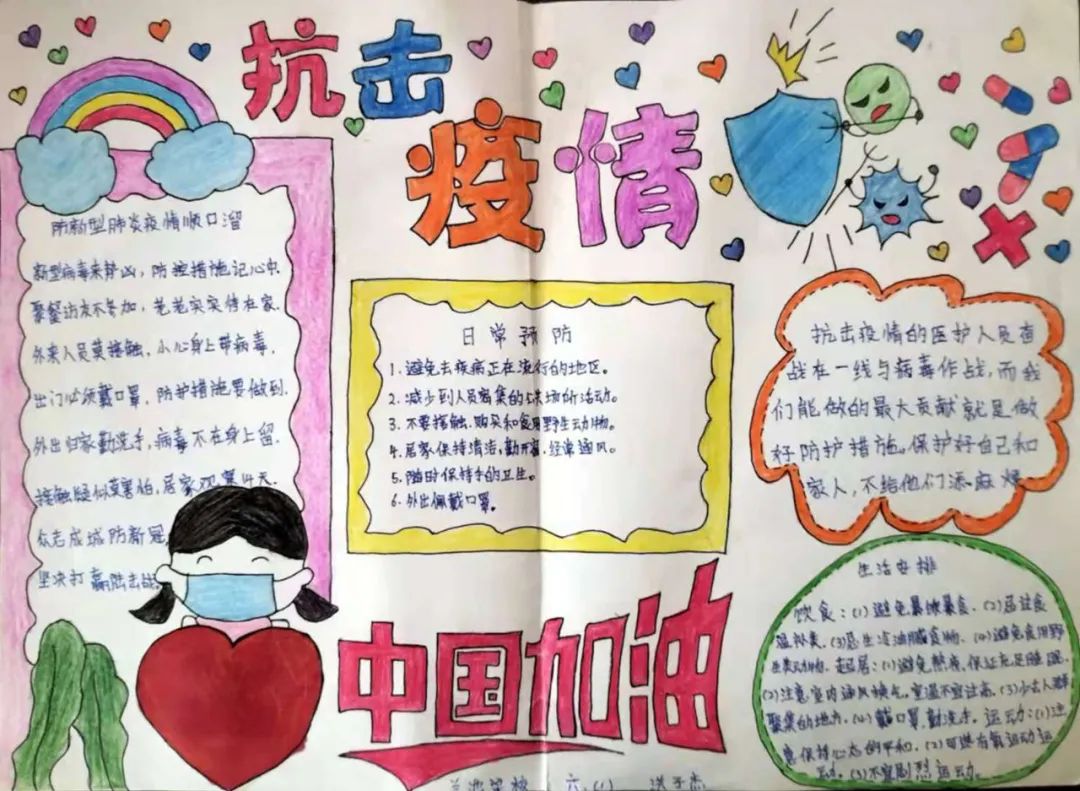 抗击
疫情
防新型肺炎疫情顺口溜
新型病毒来势凶，防控措施记心中.
聚餐访友不参加，老老实实待在家.
外来人员莫接触，小心身上带病毒.
出门必须戴口罩，防护措施要做到.
外出归家勤洗手，病毒不在身上留.
接触疑似莫害怕，居家观察14天.
众志成城防新冠
坚决打赢阻击战
日常预防
1.避免去疾病正在流行的地区。
2.减少到人员密集的公共场所活动。
3.不要接触.购买和食用野生动物。
4.居家保持清洁，勤开窗，经常通风。
5.随时保持手的卫生。
6.外出佩戴口罩。
抗击疫情的医护人员奋
战在一线与病毒作战，而我
们能做的最大贡献就是做
好防护措施。保护好自己和
家人，不给他们添麻烦
生活安排
饮食：(1)避免暴饮暴食.(2)忌过食
温补类.(3)忌生冷油腻食物.(4)避免食用野
生类动物.起居：(1)避免熬夜，保证充足睡眠.
(2)注意室内通风换气，室温不宜过高.(3)少去人群
聚集的地方.(4)戴口罩，勤洗手.运动：(1)注
意保持心态的平和.(2)可选有氧运动运
动.(3)不宜剧烈运动.
中国加油
六.(1)